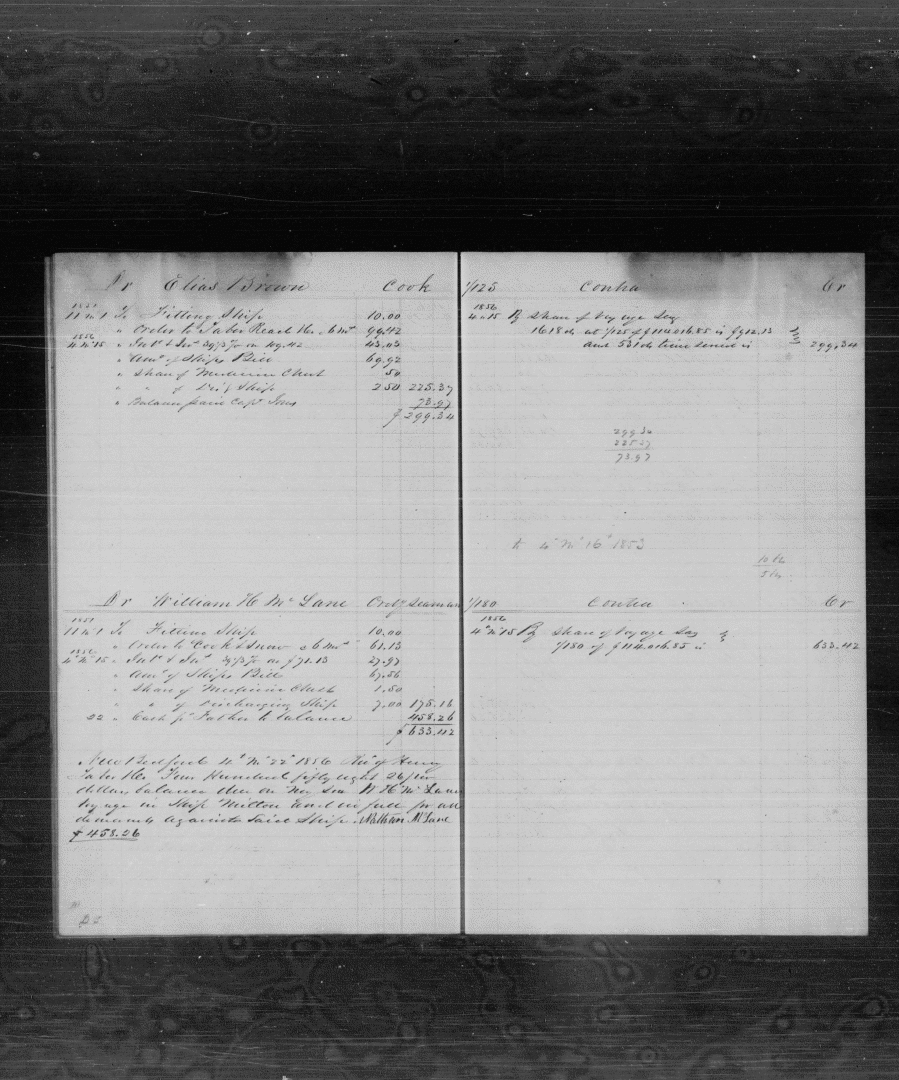 Dr Elias Brown Cook
1851
11 m 1 To Fitting Ship 10.00
" Order to Taber Read &Co 6 mos 99.42
1856
4 m 15 " Int & Ins 39/3 % on 99.42 43.03
" Amt of Ships Bill 69.92
" Share of Medicine Chest 50
" " of Ship 2.50 225.37
" Balance paid Capt Jones 73.97
$ 299.34
Dr William H McLane Ordy Seaman
1851
11 m 1 To Fitting Ship 10.00
" Order to Cook & Snow 6 mos 61.13
1856
4 m 15 " Int & Ins 39/3 % on $71.13 27.97
" Amt of Ships Bill 67.56
" Share of Medicine Chest 1.50
" " of Discharging Ship 7.00 175.16
22 " Cash pd Father to balance 458.26
$ 633.42
New Bedford 4th Mo 22d 1856 Recd of Henry
Taber &Co Four Hundred fifty eight 26/100
dollars balance due on my son W H McLane
voyage in Ship Milton and in full for all
demands against said Ship. Nathan McLane
$ 458.26
1/125 Contra Cr
1856
4 m 15 By Share of Voyage Say
1618 ds at 1/125 of $114016.85 is $912.13
and 531 ds time served is 299.34
299.34
225.37
73.97
4th Mo 16th 1853
1/180 Contra Cr
1856
4 m 15 By Share of Voyage Say
1/180 of $114.016.85 is 633.42